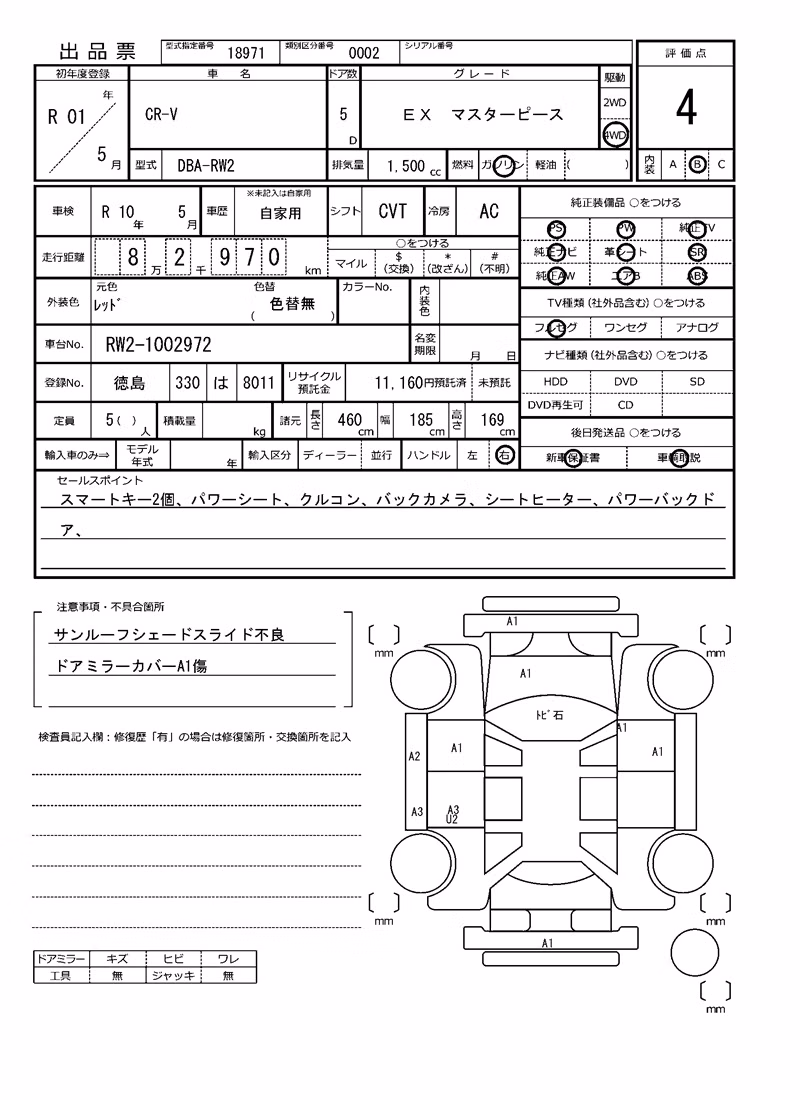 出品票
型式指定番号 18971 類別区分番号 0002 シリアル番号
評価点
初年度登録 車名 ドア数 グレード 駆動
R 01 年 5 月
CR-V
5 D
EX マスターピース
2WD
4WD
4
型式 DBA-RW2 排気量 1,500 cc 燃料 ガソリン 軽油 ( )
内装 A B C
車検 R 10 年 5 月 車歴 ※未記入は自家用 自家用 シフト CVT 冷房 AC
純正装備品 ○をつける
PS PW 純正TV
純正ナビ 革シート SR
純正AW エアB ABS
走行距離 8 万 2 千 9 7 0 km
○をつける
マイル $ (交換) * (改ざん) # (不明)
外装色 元色 レッド 色替 ( 色替無 ) カラーNo. 内装色
TV種類(社外品含む)○をつける
フルセグ ワンセグ アナログ
車台No. RW2-1002972 名変期限 月 日
ナビ種類(社外品含む)○をつける
HDD DVD SD
DVD再生可 CD
登録No. 徳島 330 は 8011 リサイクル預託金 11,160円預託済 未預託
定員 5( ) 人 積載量 kg 諸元 長さ 460 cm 幅 185 cm 高さ 169 cm
後日発送品 ○をつける
新車保証書 車輌取説
輸入車のみ⇒ モデル年式 年 輸入区分 ディーラー 並行 ハンドル 左 右
セールスポイント
スマートキー2個、パワーシート、クルコン、バックカメラ、シートヒーター、パワーバックド
ア、
注意事項・不具合箇所
サンルーフシェードスライド不良
ドアミラーカバーA1傷
検査員記入欄：修復歴「有」の場合は修復箇所・交換箇所を記入
ドアミラー キズ ヒビ ワレ
工具 無 ジャッキ 無
A1
mm
mm
A1
トビ石
A1
A1
A1
A2
A3
A3
U2
mm
mm
A1
mm